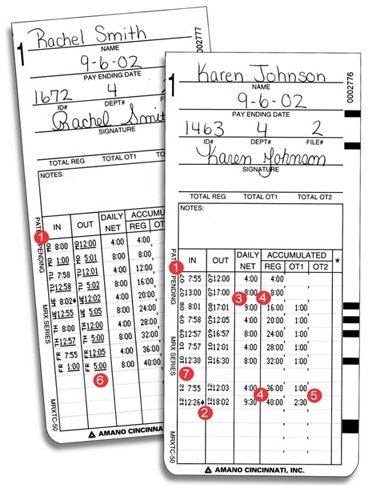 Rachel Smith
NAME
9-6-02
PAY ENDING DATE
1672 4
ID# DEPT#
Rachel Smit
SIGNATURE
TOTAL REG TOTAL OT1
NOTES:
1
0002777
PATENT PENDING
MRX SERIES
MRXTC-50
IN OUT DAILY NET ACCUMULATED REG
MO 8:00 MO 12:00 4:00 4:00
MO 1:00 MO 5:01 8:00 8:00
TU 7:58 TU 12:01 4:00 12:00
TU 12:58 TU 5:02 8:00 16:00
WE 8:02 WE 12:01 4:00 20:00
WE 12:55 WE 5:05 8:00 24:00
TH 8:00 12:00 4:00 28:00
TH 12:57 5:00 8:00 32:00
FR 7:58 FR 12:05 4:00 36:00
FR 1:00 FR 5:00 8:00 40:00
1
6
AMANO CINCINNATI
Karen Johnson
NAME
9-6-02
PAY ENDING DATE
1463 4 2
ID# DEPT# FILE#
Karen Johnson
SIGNATURE
TOTAL REG TOTAL OT1 TOTAL OT2
NOTES:
1
0002776
PATENT PENDING
MRX SERIES
MRXTC-50
IN OUT DAILY NET ACCUMULATED REG OT1 OT2 *
7:55 12:00 4:00 4:00
13:00 17:00 8:00 8:00
8:01 17:01 9:00 16:00 1:00
7:58 12:05 4:00 20:00 1:00
12:56 16:57 8:00 24:00 1:00
7:57 12:01 4:00 28:00 1:00
12:30 16:30 8:00 32:00 1:00
7:55 12:03 4:00 36:00 1:00
12:26 18:02 9:30 40:00 2:30
1
3
4
7
4
5
2
AMANO CINCINNATI, INC.